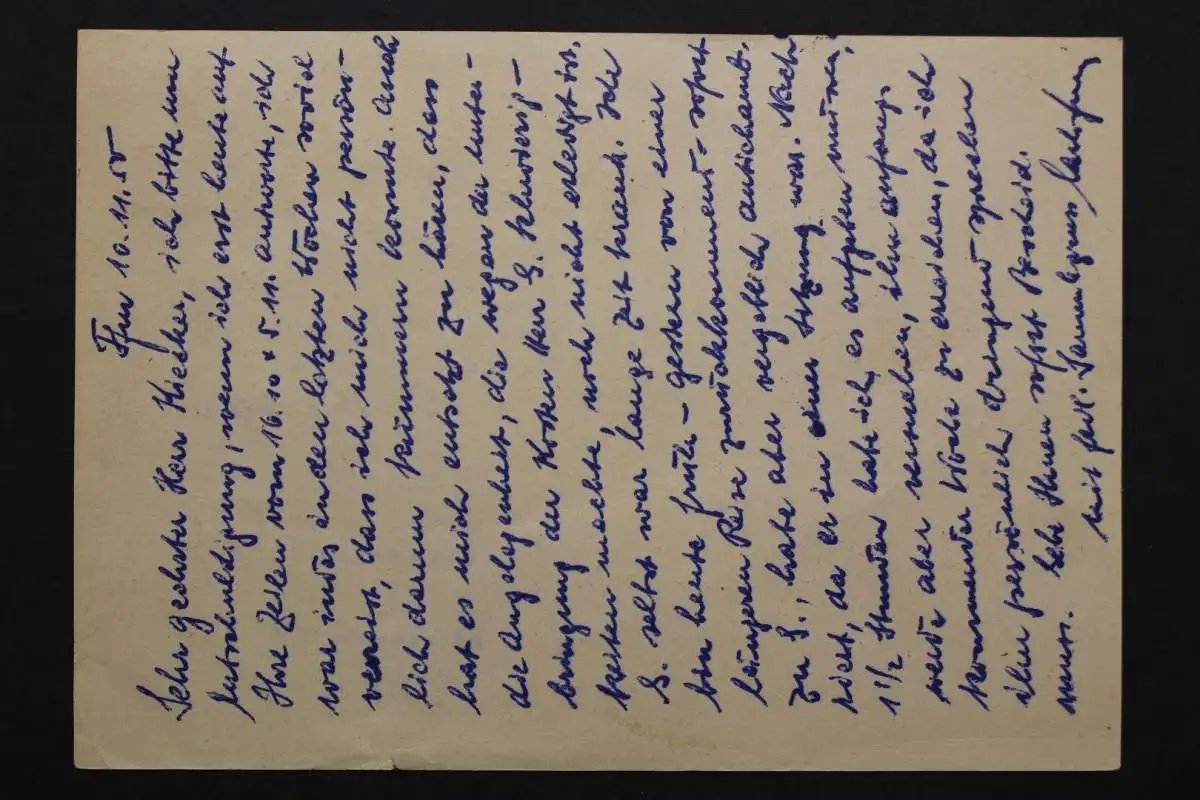 Ffm 10.11.50
Sehr geehrter Herr Kiesker, ich bitte um
Entschuldigung, wenn ich erst heute auf
Ihre Zeilen vom 16.10 & 5.11. antworte, ich
war indes in den letzten Wochen soviel
verreist, dass ich mich nicht persön-
lich darum kümmern konnte. Auch
hat es mich entsetzt zu hören, dass
die Angelegenheit, die wegen der Unter-
bringung der Kosten Herr S. Schwierig-
keiten machte, noch nicht erledigt ist.
S. selbst war lange Zeit krank. Ich
bin heute früh - gestern von einer
längeren Reise zurückkommend - sofort
zu S., habe aber vergeblich antichamb-
riert, da er in einer Sitzung war. Nach
1 1/2 Stunden habe ich es aufgeben müssen,
werde aber versuchen, ihn anfangs
kommender Woche zu erreichen, da ich
ihn persönlich dringend sprechen
muss. Gebe Ihnen sofort Bescheid.
Mit frdl. Sammlergruss